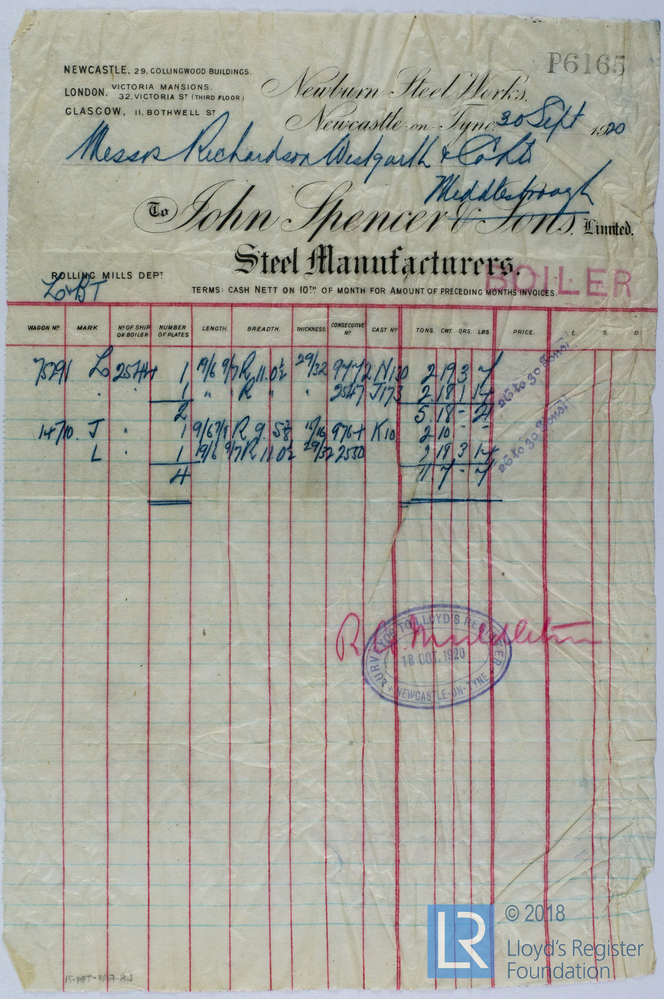 P6165
NEWCASTLE, 29, COLLINGWOOD BUILDINGS.
LONDON, VICTORIA MANSIONS, 32, VICTORIA ST (THIRD FLOOR)
GLASGOW, 11, BOTHWELL ST
Newburn Steel Works,
Newcastle-on-Tyne, 30 Sept 1920
Messrs Richardson Westgarth & Co Ltd
Middlesbrough
To John Spencer & Sons, Limited.
Steel Manufacturers,
BOILER
ROLLING MILLS DEPT
TERMS: CASH NETT ON 10TH OF MONTH FOR AMOUNT OF PRECEDING MONTHS INVOICES.
WAGON No MARK No OF SHIP OR BOILER NUMBER OF PLATES LENGTH. BREADTH. THICKNESS. CONSECUTIVE No CAST No TONS. CWT. QRS. LBS. PRICE. £ S D
1 19/6 9/7 R 11.0½ 29/32 N130 2 19 3 7
26 to 30 Tons
1 " " R " 2547 J173 2 18 1 14
2 5 18 - 21
J " 1 R K10 2 10
26 to 30 Tons
L " 1 19/6 9/7 R 11.0½ 29/32 2550 2 19 3 14
4 11 7 - 7
SURVEYOR TO LLOYD'S REGISTER
R Middleton
18 OCT. 1920
NEWCASTLE-ON-TYNE
LR © 2018
Lloyd's Register
Foundation